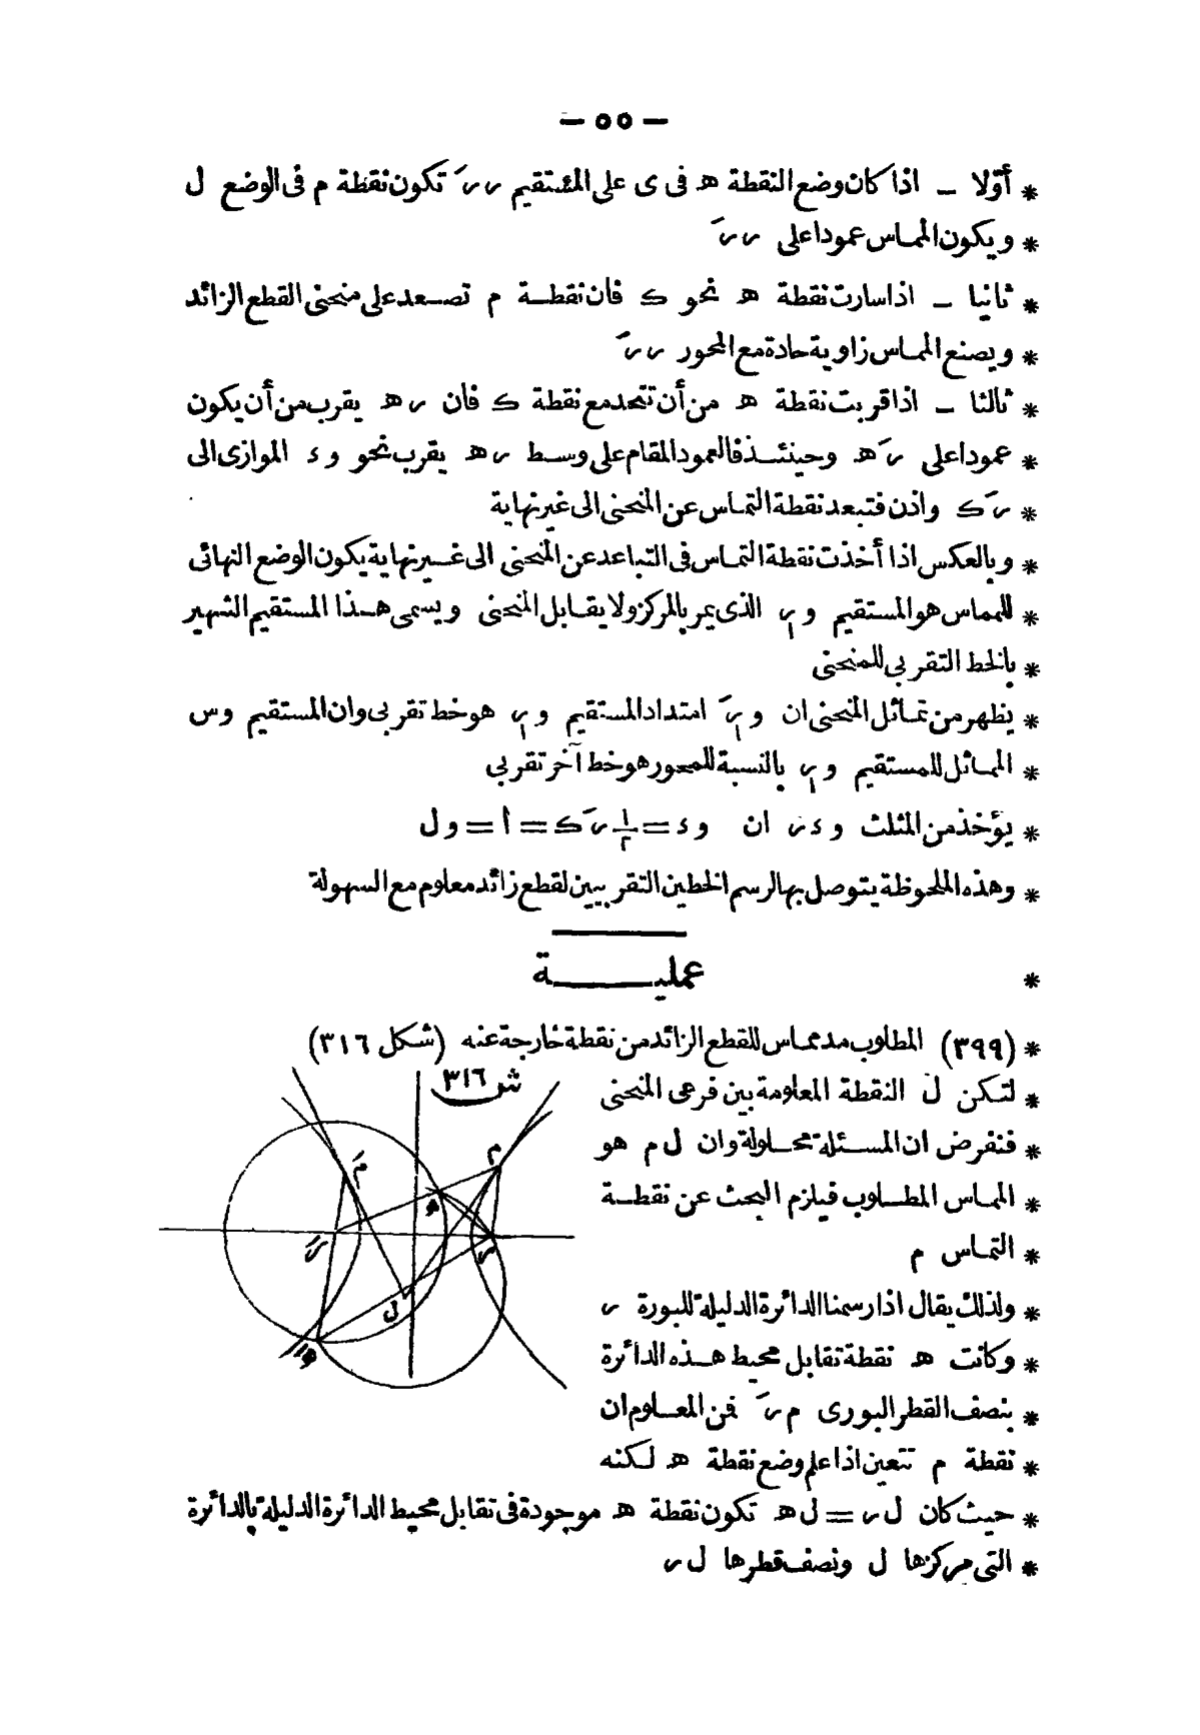 — ٥٥ —
* أوّلا — اذا كان وضع النقطة ﻫ فى ى على المستقيم ر رَ تكون نقطة م فى الوضع ل
* ويكون المماس عمودا على ر رَ
* ثانيا — اذا سارت نقطة ﻫ نحو ك فان نقطة م تصعد على منحنى القطع الزائد
* ويصنع المماس زاوية حادة مع المحور ر رَ
* ثالثا — اذا قربت نقطة ﻫ من أن تتحد مع نقطة ك فان ر ﻫ يقرب من أن يكون
* عمودا على رَ ﻫ وحينئذ فالعمود المقام على وسط ر ﻫ يقرب نحو و ء الموازى الى
* رَ ك واذن فتبعد نقطة التماس عن المنحنى الى غير نهاية
* وبالعكس اذا أخذت نقطة التماس فى التباعد عن المنحنى الى غير نهاية يكون الوضع النهائى
* للمماس هو المستقيم و ر١ الذى يمر بالمركز ولا يقابل المنحنى ويسمى هذا المستقيم الشهير
* بالخط التقربى للمنحنى
* يظهر من تماثل المنحنى ان و رَ١ امتداد المستقيم و ر١ هو خط تقربى وان المستقيم و س
* المماثل للمستقيم و ر١ بالنسبة للمحور هو خط آخر تقربى
* يؤخذ من المثلث و ء ر ان و ء = ١/٢ رَ ك = أ = و ل
* وهذه الملحوظة يتوصل بها لرسم الخطين التقربيين لقطع زائد معلوم مع السهولة
* عملية
* (٣٩٩) المطلوب مد مماس للقطع الزائد من نقطة خارجة عنه (شكل ٣١٦)
* لتكن ل النقطة المعلومة بين فرعى المنحنى
* فنفرض ان المسئلة محلولة وان ل م هو
* المماس المطلوب فيلزم البحث عن نقطة
* التماس م
* ولذلك يقال اذا رسمنا الدائرة الدليلة للبورة ر
* وكانت ﻫ نقطة تقابل محيط هذه الدائرة
* بنصف القطر البورى م رَ فمن المعلوم ان
* نقطة م تتعين اذا علم وضع نقطة ﻫ لكنه
* حيث كان ل ر = ل ﻫ تكون نقطة ﻫ موجودة فى تقابل محيط الدائرة الدليلة بالدائرة
* التى مركزها ل ونصف قطرها ل ر
ش ٣١٦
م
م١
ﻫ
رَ
ر
ل
ﻫ١